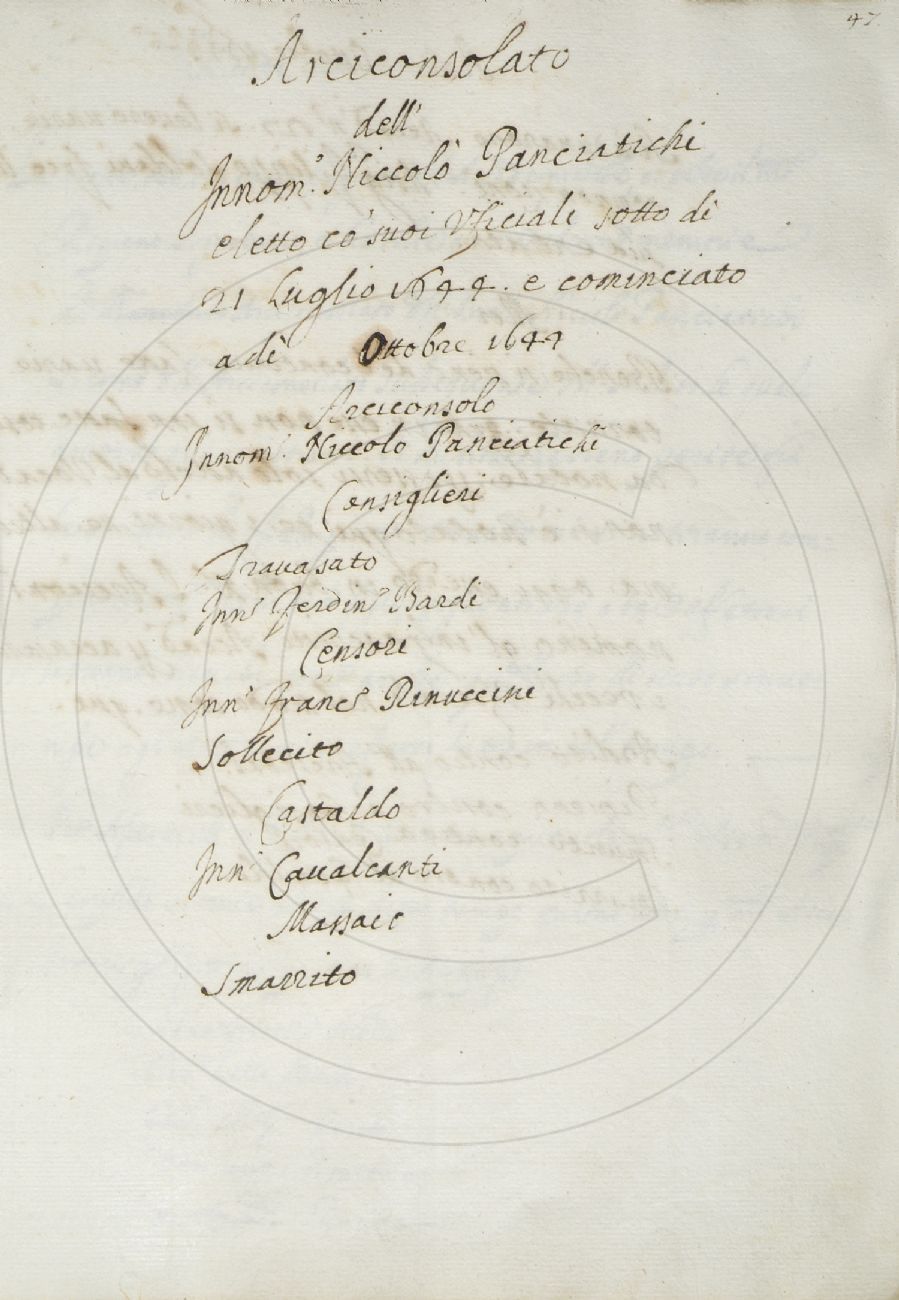 47
Arciconsolato
dell'
Innom.º Niccolò Panciatichi
eletto co' suoi Vficiali sotto dì
21 Luglio 1644. e cominciato
a dì Ottobre 1644
Arciconsolo
Innom.º Niccolo Panciatichi
Consiglieri
Travasato
Inn.º Ferdin.º Bardi
Censori
Inn.º Franc.º Rinuccini
Sollecito
Castaldo
Inn.º Cavalcanti
Massaio
Smarrito